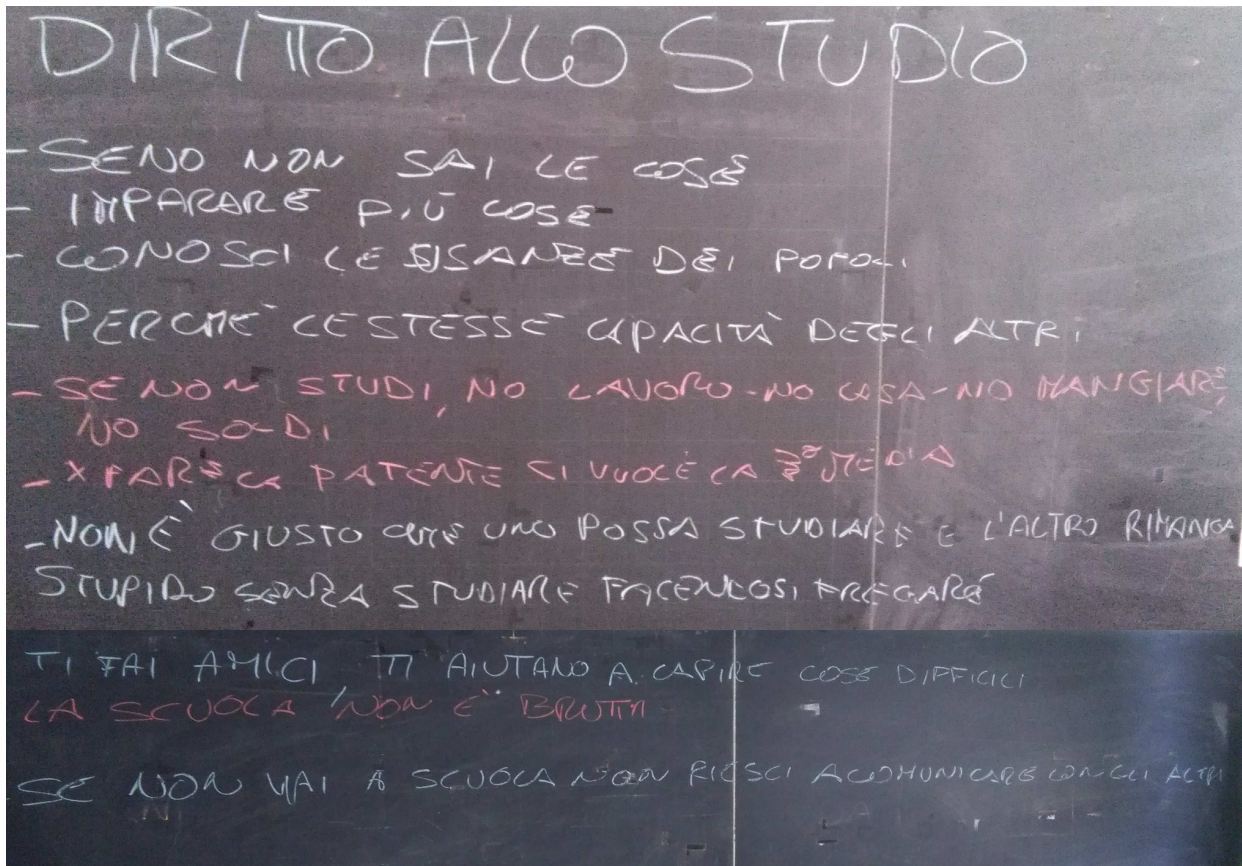 DIRITTO ALLO STUDIO
- SENO NON SAI LE COSE
- IMPARARE PIÙ COSE
- CONOSCI LE USANZE DEI POPOLI
- PERCHÈ LE STESSE CAPACITÀ DEGLI ALTRI
- SE NON STUDI, NO LAVORO - NO CASA - NO MANGIARE,
NO SOLDI
- X FARE LA PATENTE CI VUOLE LA 3ª MEDIA
- NON È GIUSTO CHE UNO POSSA STUDIARE E L'ALTRO RIMANGA
STUPIDO SENZA STUDIARE FACENDOSI FREGARE
TI FAI AMICI TI AIUTANO A CAPIRE COSE DIFFICILI
LA SCUOLA NON È BRUTTA
SE NON VAI A SCUOLA NON RIESCI A COMUNICARE CON GLI ALTRI